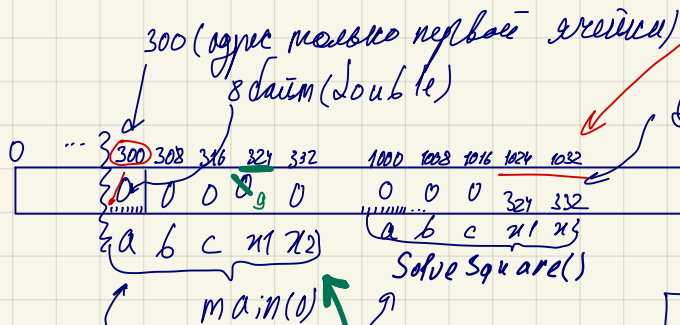 300 (адрес только первой ячейки)
8 байт (double)
0 ... 300 308 316 324 332 1000 1008 1016 1024 1032
0 0 0 0 9 0 0 0 0 324 332
a b c x1 x2 a b c x1 x2
SolveSquare()
main(0)